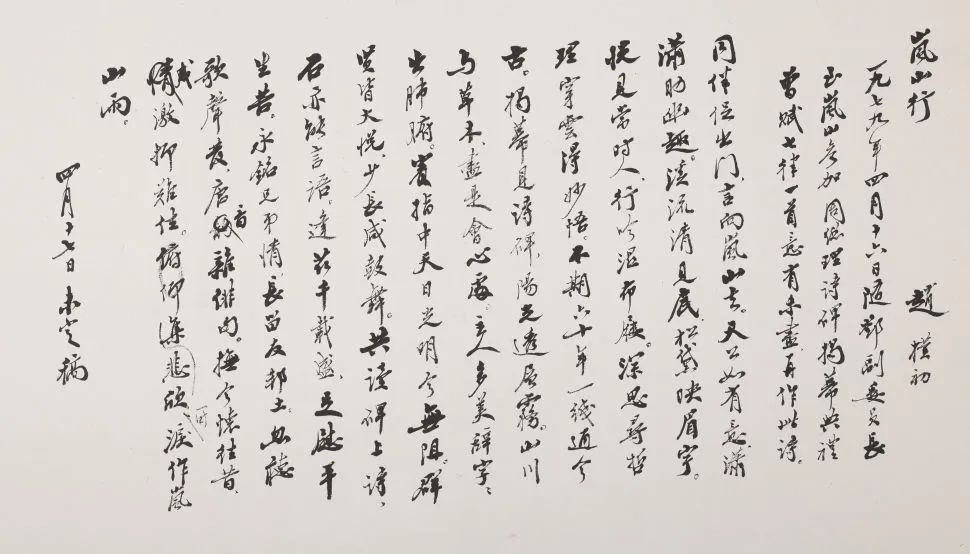 嵐山行 趙樸初
一九七九年四月十六日隨鄧副委員長
至嵐山參加周總理詩碑揭幕典禮
曾賦七律一首意有未盡再作此詩。
同伴促出門,言向嵐山去。天公如有意,瀟
瀟助幽趣。溪流清見底,松黛映眉宇。
恍見當時人,行吟濕布履。深思尋哲
理,穿雲得妙悟。不期六十年,一綫通今
古。揭幕見詩碑,陽光透層霧。山川
与草木,盡是會心處。主人多美辭,字字
出肺腑。爰指中天日,光明今無阻。群
賢皆大悅,少長咸鼓舞。共讀碑上詩,
石亦能言語。逢茲千載盛,足慰平
生苦。永銘兄弟情,長留友邦土。忽聽
歌聲發,唐音雜俳句。撫今懷往昔,
感激抑難住。俯仰集悲欣,淚作嵐
山雨。
四月十七日未定稿